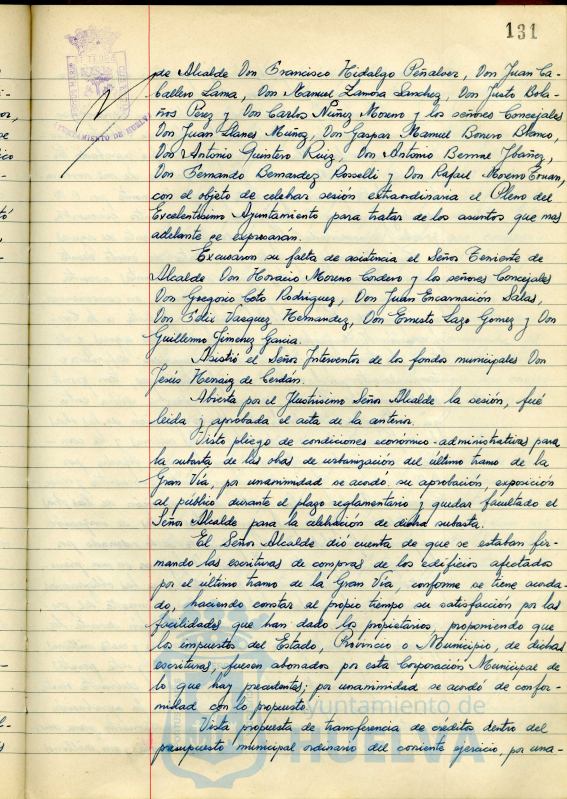 131
AYUNTAMIENTO DE HUELVA
de Alcalde Don Francisco Hidalgo Peñalver, Don Juan Ca-
ballero Lama, Don Manuel Zamora Sanchez, Don Justo Bola-
ños Perez y Don Carlos Nuñez Moreno y los señores Concejales
Don Juan Llanes Muñoz, Don Gaspar Manuel Bonero Blanco,
Don Antonio Quintero Ruiz, Don Antonio Bernal Ibañez,
Don Fernando Bernardez Rosselli y Don Rafael Moreno
con el objeto de celebrar sesión extraordinaria el Pleno del
Excelentísimo Ayuntamiento para tratar de los asuntos que mas
adelante se expresarán.
Excusaron su falta de asistencia el Señor Teniente de
Alcalde Don Horacio Moreno Cordero y los señores Concejales
Don Gregorio Coto Rodriguez, Don Juan Encarnación Salas,
Don Felix Vazquez Hernandez, Don Ernesto Lazo Gomez y Don
Guillermo Jimenez Garcia.
Asistió el Señor Interventor de los fondos municipales Don
Jesús de Cerdán.
Abierta por el Ilustrisimo Señor Alcalde la sesión, fué
leida y aprobada el acta de la anterior.
Visto pliego de condiciones económico-administrativas para
la subasta de las obras de urbanización del último tramo de la
Gran Vía, por unanimidad se acordo su aprobación, exposición
al público durante el plazo reglamentario y quedar facultado el
Señor Alcalde para la celebración de dicha subasta.
El Señor Alcalde dió cuenta de que se estaban fir-
mando las escrituras de compras de los edificios afectados
por el último tramo de la Gran Vía, conforme se tiene acorda-
do, haciendo constar al propio tiempo su satisfacción por las
facilidades que han dado los propietarios, proponiendo que
los impuestos del Estado, Provincia o Municipio, de dichas
escrituras, fuesen abonados por esta Corporación Municipal de
lo que hay precedentes; por unanimidad se acordó de confor-
midad con lo propuesto.
Vista propuesta de transferencia de créditos dentro del
presupuesto municipal ordinario del corriente ejercicio, por una-
Ayuntamiento de
HUELVA